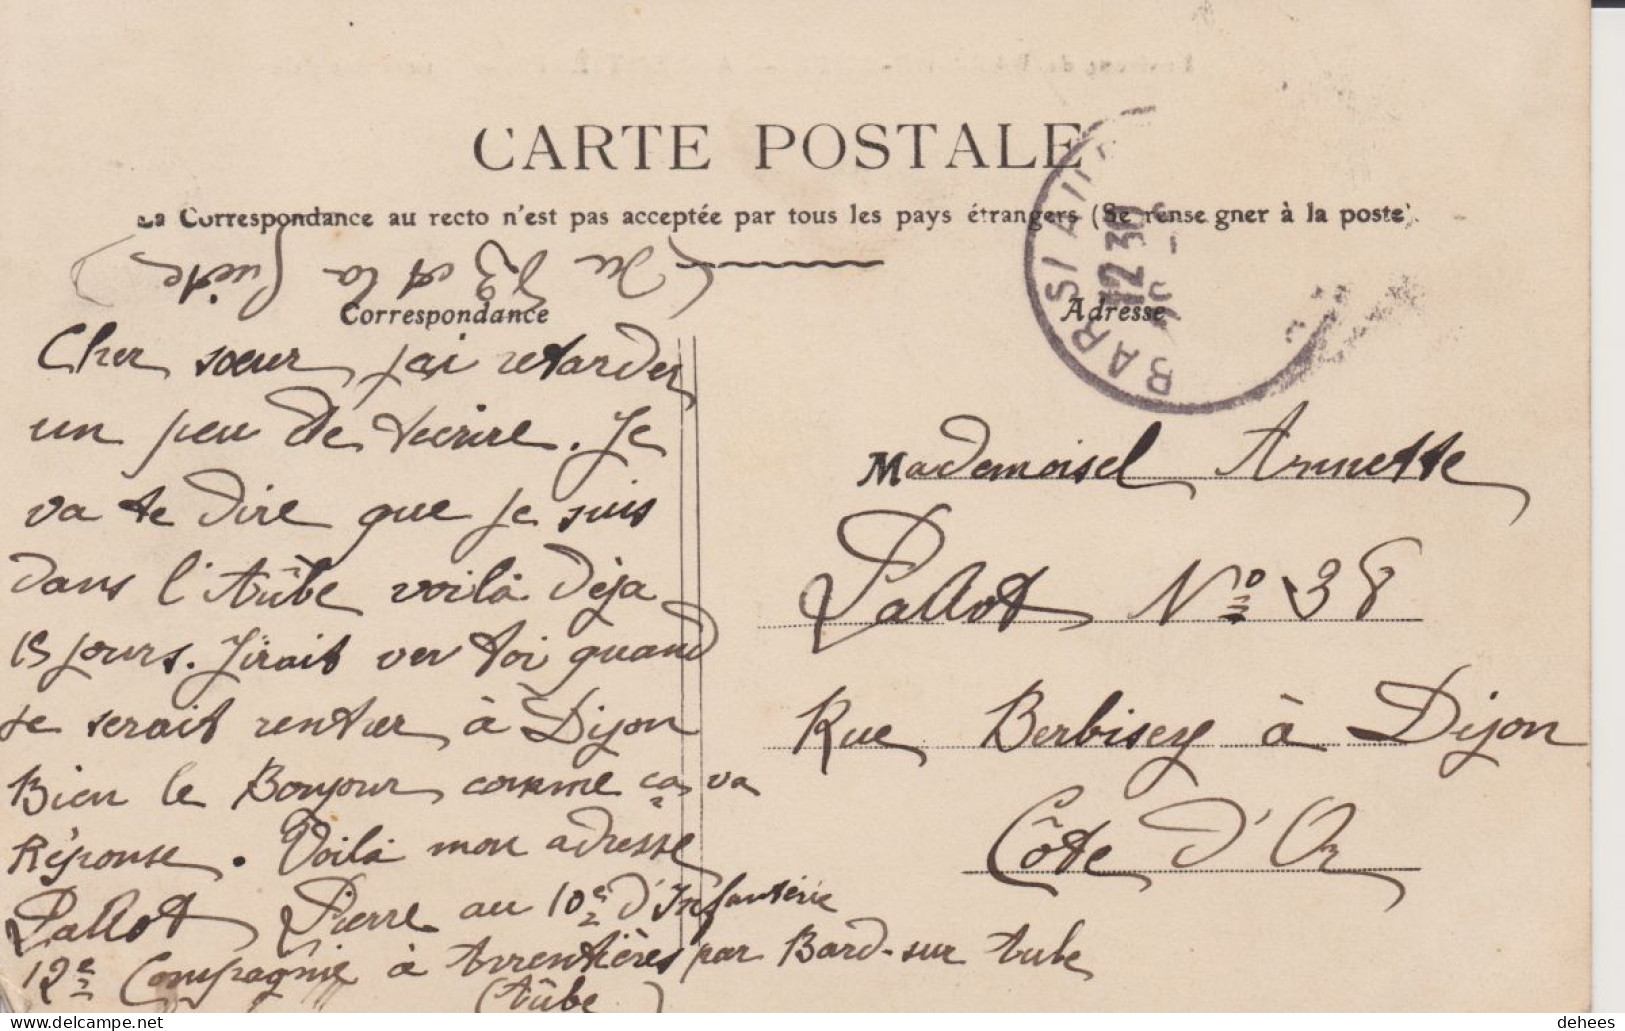 CARTE POSTALE
La Correspondance au recto n'est pas acceptée par tous les pays étrangers (Se renseigner à la poste).
(du 13 et la suite)
Correspondance
Adresse
BAR SI AU
12 30
Cher sœur j'ai retarder
un peu de t'ecrire. Je
va te dire que je suis
dans l'Aûbe voilà dèja
15 jours. J'irait ver toi quand
je serait rentrer à Dijon
Bien le Bonjour comme ça va
Réponse. Voilà mon adresse
Pallot Pierre au 10e d'Infanterie
12e Compagnie à Arrentières par Bard-sur Aube
(Aûbe)
Mademoisel Annette
Pallot No 38
Rue Berbisey à Dijon
Côte d'Or
dehees